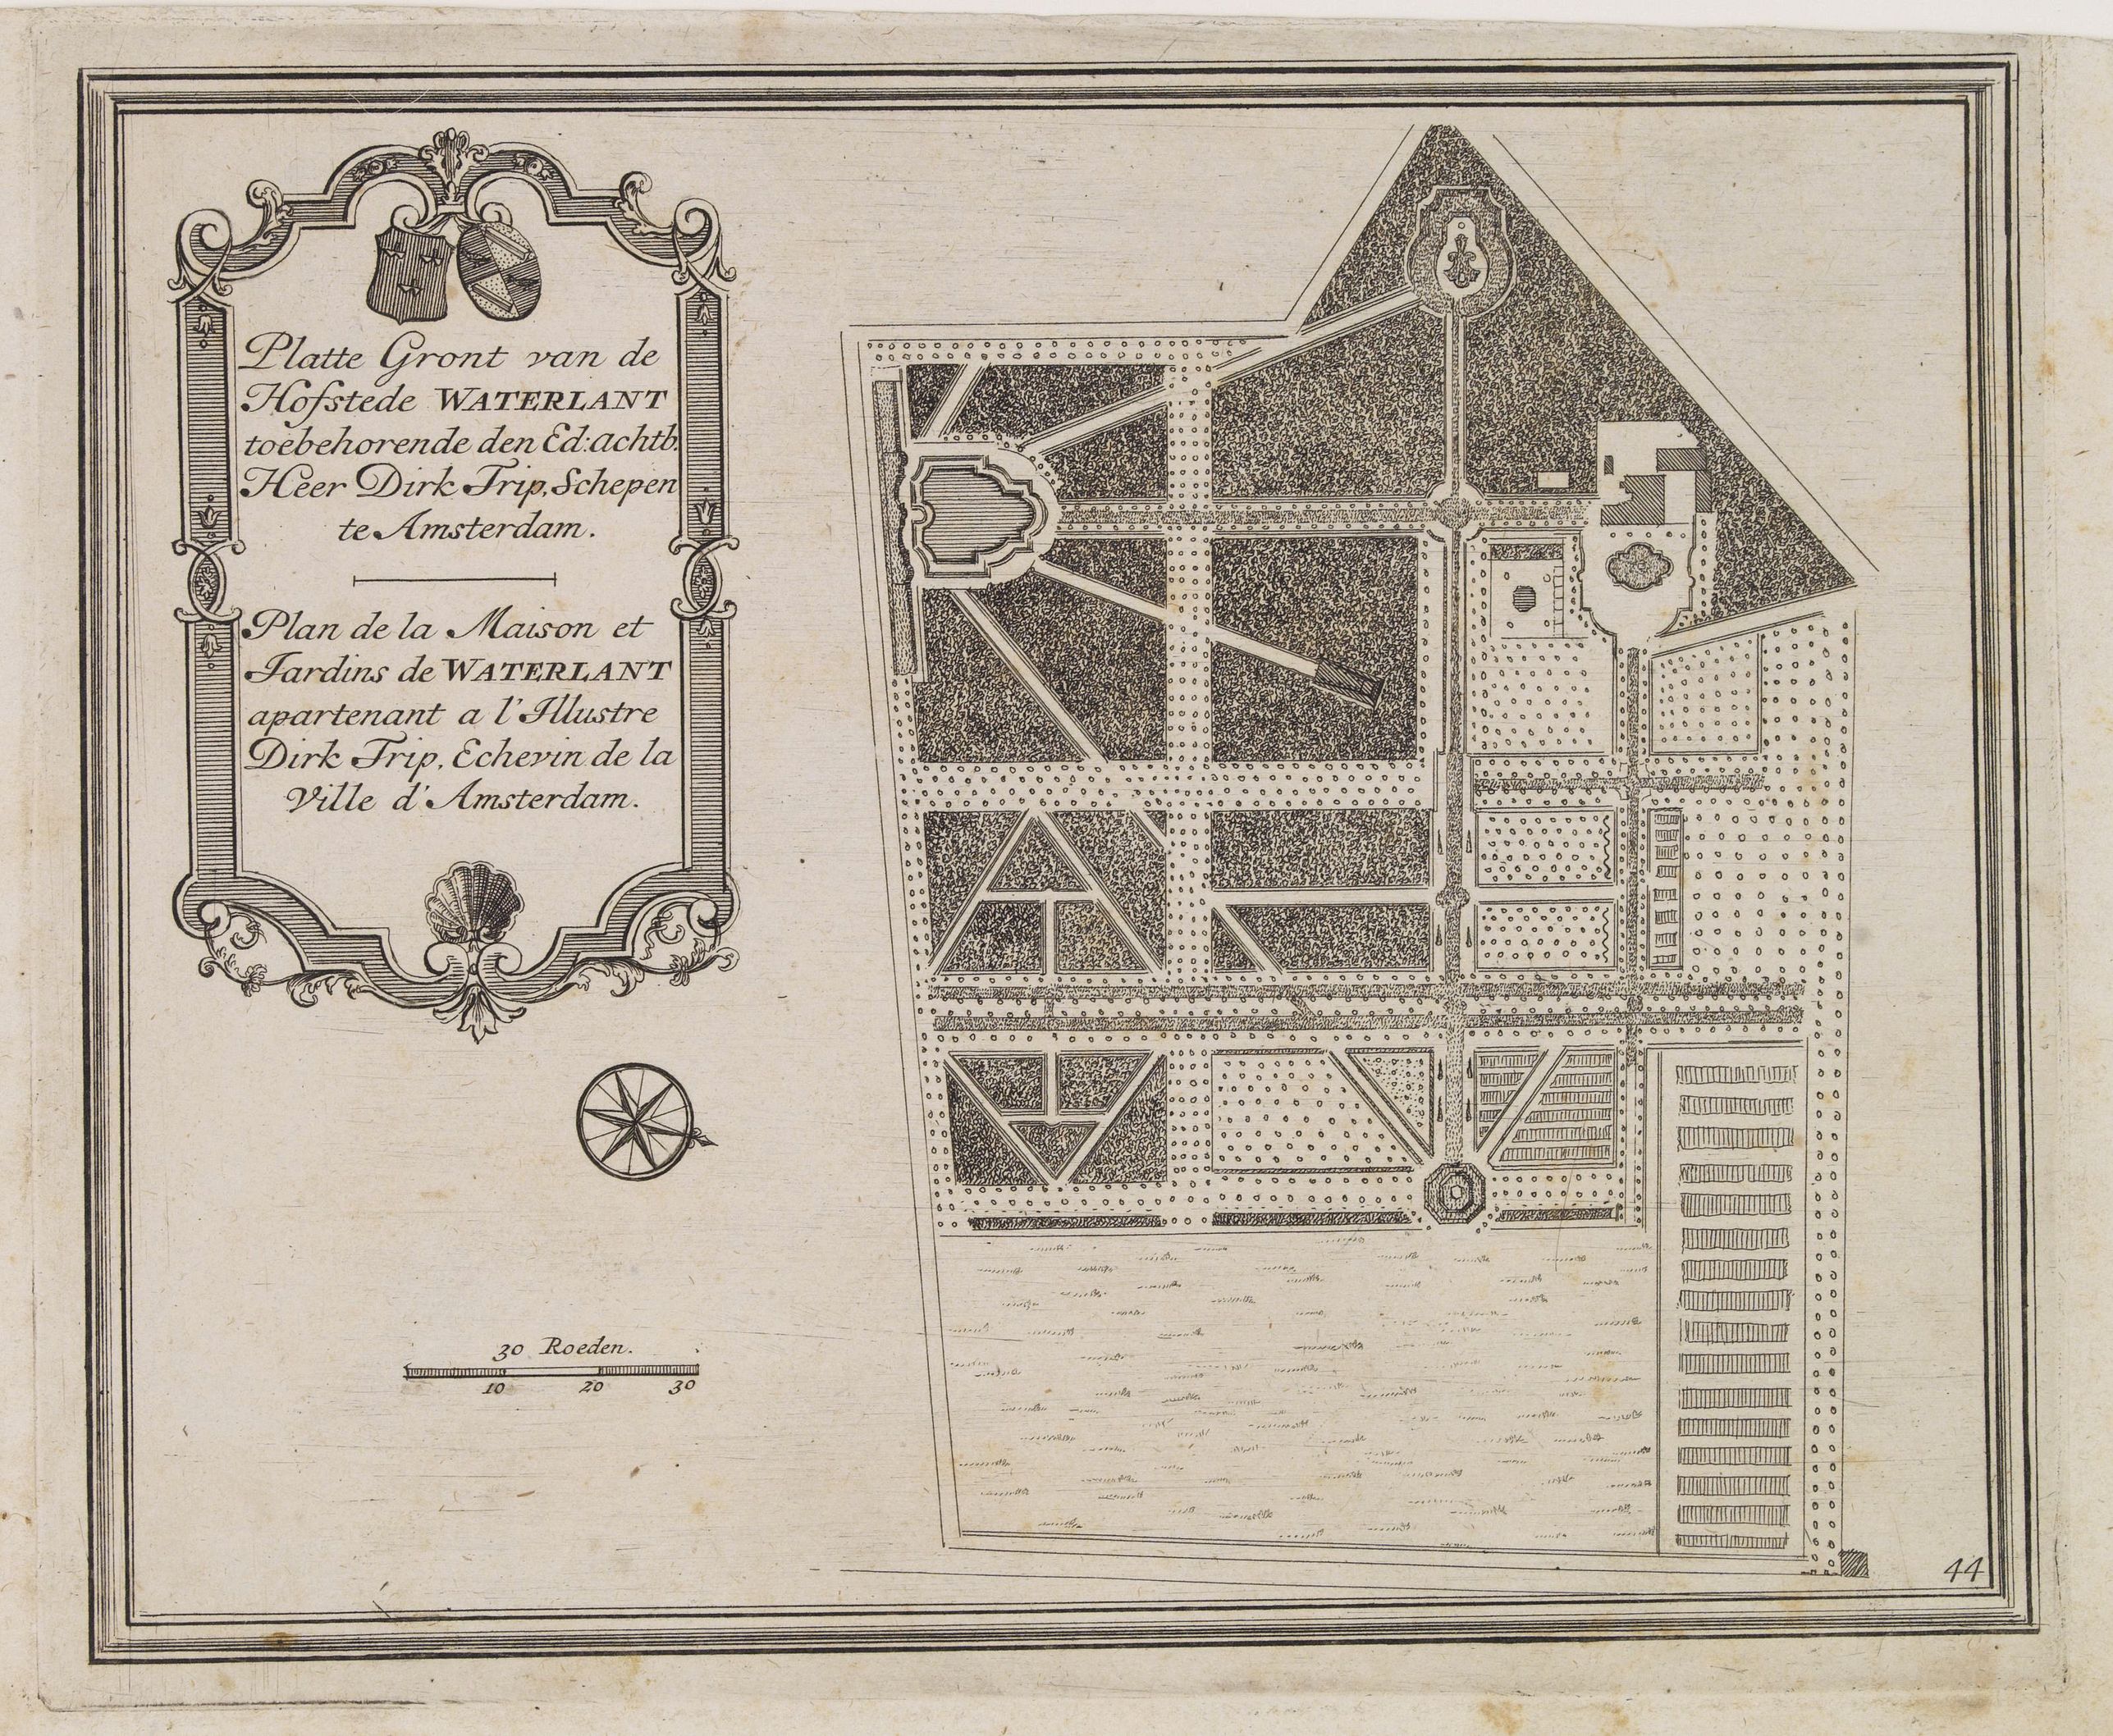 Platte Gront van de
Hofstede WATERLANT
toebehorende den Ed: achtb.
Heer Dirk Trip, Schepen
te Amsterdam.
Plan de la Maison et
Jardins de WATERLANT
apartenant a l'Illustre
Dirk Trip, Echevin de la
Ville d'Amsterdam.
30 Roeden.
10 20 30
44